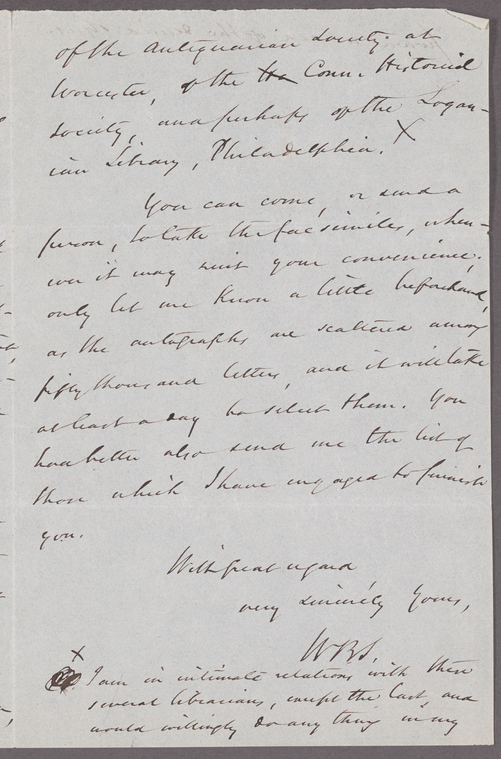 of the Antiquarian Society at
Worcester, of the Conn. Historical
Society, and perhaps of the Logan-
ian Library, Philadelphia. X
You can come, or send a
person, to take the facsimiles, when-
ever it may suit your convenience;
only let me know a little beforehand,
as the autographs are scattered among
fifty thousand letters, and it will take
at least a day to select them. You
had better also send me the list of
those which I have engaged to furnish
you.
With great regard
very sincerely Yours,
WBS.
X I am in intimate relations with these
several librarians, except the last, and
would willingly do any thing in my